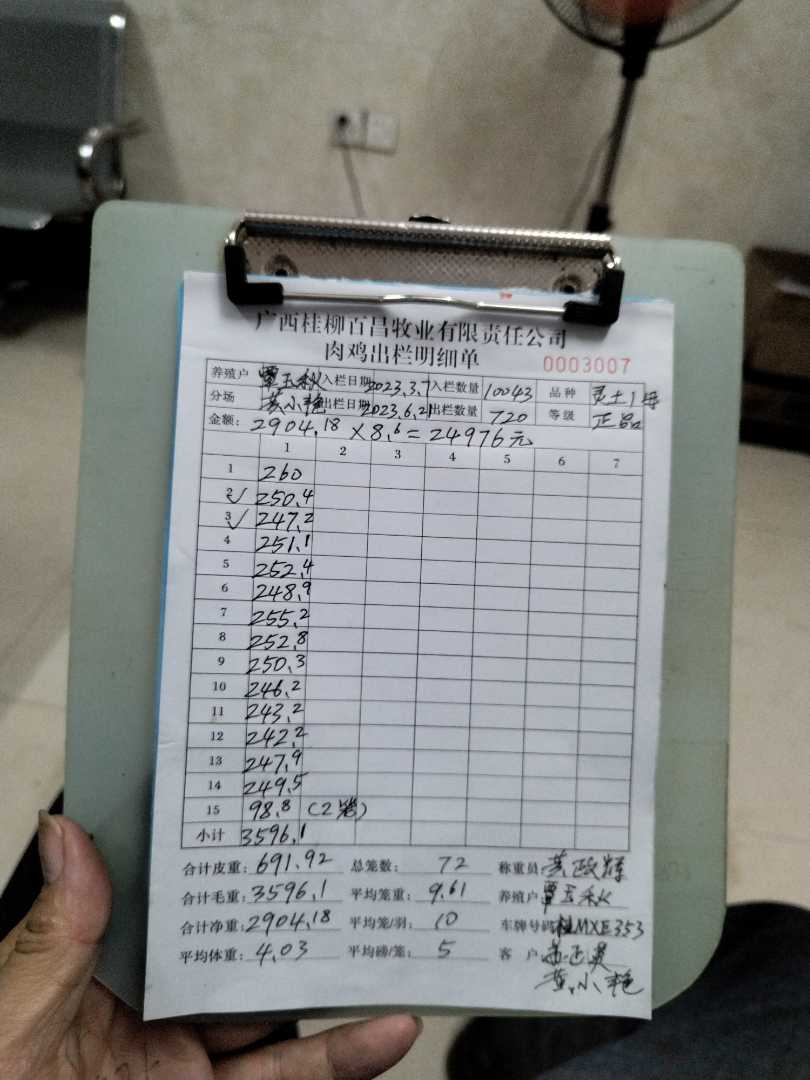 广西桂柳百昌牧业有限责任公司
肉鸡出栏明细单 0003007
养殖户 覃玉秋 入栏日期 2023.3.7 入栏数量 10043 品种 灵土1号
分场 黄小艳 出栏日期 2023.6.21 出栏数量 720 等级 正品
金额: 2904.18×8.6=24976元
1 2 3 4 5 6 7
1 260
2 250.4
3 247.2
4 251.1
5 252.4
6 248.9
7 255.2
8 252.8
9 250.3
10 246.2
11 243.2
12 242.2
13 247.9
14 249.5
15 98.8 (2笼)
小计 3596.1
合计皮重: 691.92 总笼数: 72 称重员 黄政辉
合计毛重: 3596.1 平均笼重: 9.61 养殖户 覃玉秋
合计净重: 2904.18 平均笼/羽: 10 车牌号码 桂MXE353
平均体重: 4.03 平均磅/笼: 5 客户
黄小艳